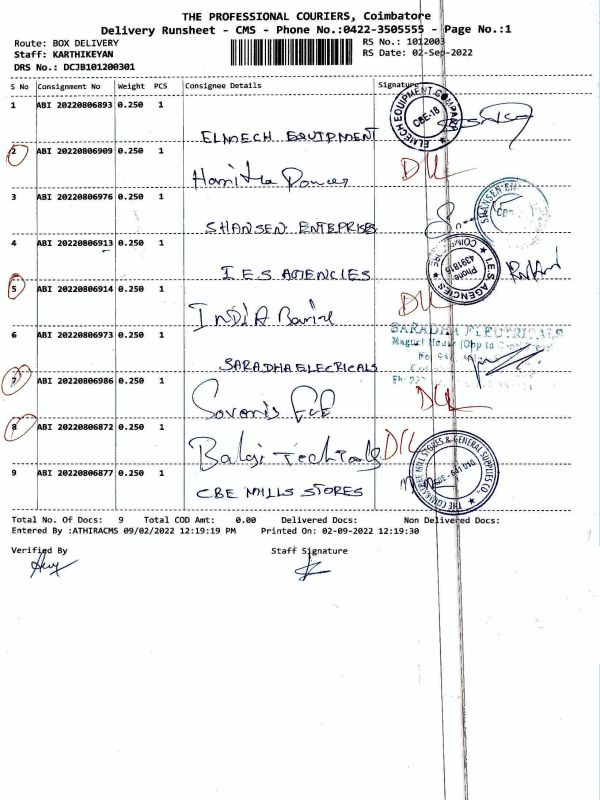 THE PROFESSIONAL COURIERS, Coimbatore
Delivery Runsheet - CMS - Phone No.:0422-3505555 - Page No.:1
Route: BOX DELIVERY
RS No.: 1012003
Staff: KARTHIKEYAN
RS Date: 02-Sep-2022
DRS No.: DCJB101200301
S No Consignment No Weight PCS Consignee Details Signature
1 ABI 20220806893 0.250 1
ELMECH EQUIPMENT
ELMECH EQUIPMENT COMPANY
CBE-18
2 ABI 20220806909 0.250 1
DLL
3 ABI 20220806976 0.250 1
SHANSEN ENTEPRISES
4 ABI 20220806913 0.250 1
I.E.S AGENCIES
I.E.S. AGENCIES
Phone
4391815
5 ABI 20220806914 0.250 1
INDIA
DLL
6 ABI 20220806973 0.250 1
SARADHA ELECRICALS
SARADHA ELECTRICALS
7 ABI 20220806986 0.250 1
DLL
8 ABI 20220806872 0.250 1
Balaji Techtools
DLL
9 ABI 20220806877 0.250 1
CBE MILLS STORES
THE COIMBATORE MILL STORES & GENERAL SUPPLIES CO.
Total No. Of Docs: 9 Total COD Amt: 0.00 Delivered Docs: Non Delivered Docs:
Entered By :ATHIRACMS 09/02/2022 12:19:19 PM Printed On: 02-09-2022 12:19:30
Verified By Staff Signature